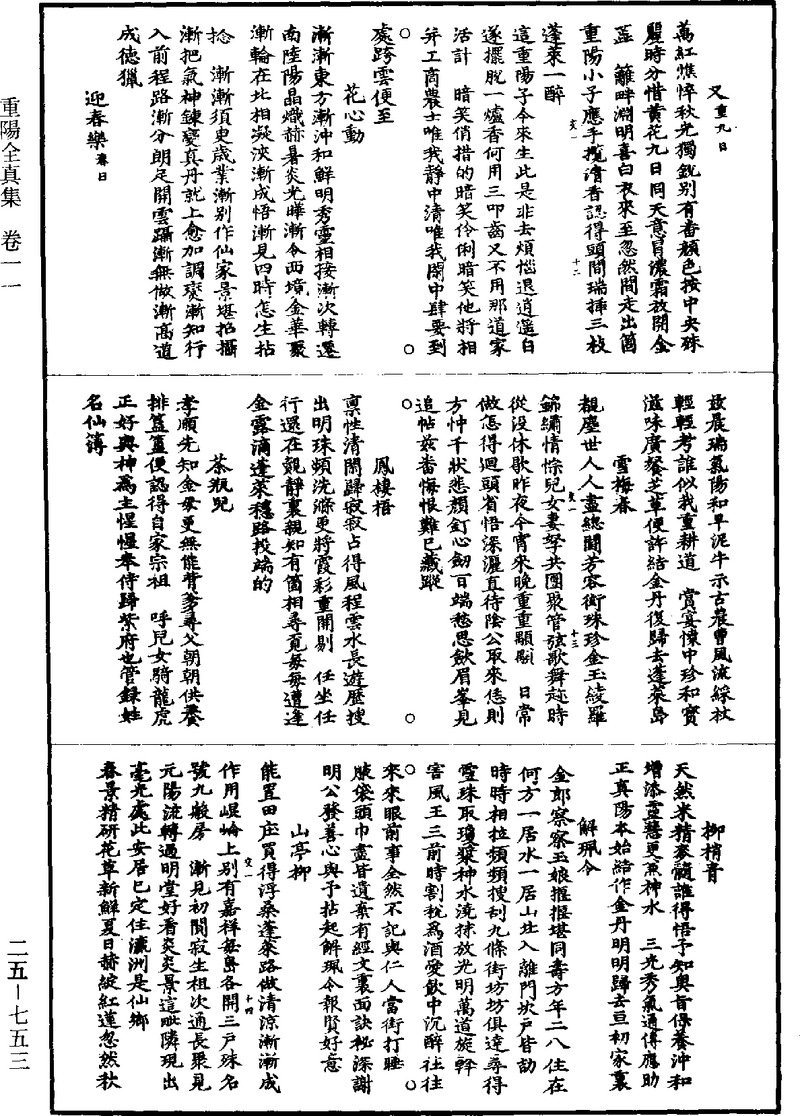 又重九日
萬紅憔悴秋光獨銳別有香顏色按中央殊
麗時分惜黃花九日同天意冒濃霜放開金
蕋　籬畔淵明喜白衣來至忽然間走出箇
重陽小子應手攬清香認得頭間瑞揷三枝
蓬萊一醉
這重陽子今來生此是非去煩惱退逍遥自
遂擺脫一爐香何用三叩齒又不用那道家
活計　暗笑俏措的暗笑伶俐暗笑他將相
并工商農士唯我靜中清唯我閙中肆要到
處跨雲便至
花心動
漸漸東方漸沖和鮮明秀靈相接漸次轉遷
南陸陽晶熾赫暑炎光曄漸令西境金華聚
漸輪在北相凝浹漸成悟漸見四時怎生拈
捻　漸漸須史歲業漸別作仙家景堪招攝
漸把氣神鍊變真丹就上愈加調燮漸知行
入前程路漸分朗足開雲躡漸無做漸高道
成德獵
迎春樂春日
玆晨瑞氣陽和早泥牛示古農曹風流綵杖
輕輕考誰似我重耕道　賞宴懷中珍和寶
滋味廣餐芝草便許結金丹復歸去蓬萊島
雪梅春
覩塵世人人盡總閗芳容衒珠珍金玉綾羅
錦繡情悰兒女妻孥共團聚管弦歌舞趂時
從沒休歇昨夜今宵來晚重重顯顯　日常
做怎得迴頭省悟深灑直待陰公取來恁則
方忡千狀悲顏釘心劒百端愁思歛眉峯見
追帖玆畨悔恨難已藏蹤
鳳棲梧
禀性清閑歸寂寂占得風程雲水長遊歷搜
出明珠頻洗滌更將霞彩重開剔　任坐任
行還在覩靜裏親知有箇相尋覓每每遭逢
金露滴蓬萊穩路投端的
荼瓶兒
孝順先知金母更無能背爹尋父朝朝供養
排簋簋便認得自家宗祖　呼兒女騎龍虎
正好與神爲主惺惺奉侍歸紫府也管録姓
名仙簿
柳梢青
天然米精麥髓誰得悟予知奧旨保養沖和
增添靈慧更烹神水　三光秀氣通傳應助
正真陽本始結作金丹明明歸去亘初家裏
解珮令
金郎察察玉娘揠揠堪同壽方年二八住在
何方一居水一居山北入離門坎戶皆劼
時時相拉頻頻搜刮九條街坊坊俱達尋得
靈珠取瓊槳种水澆抹放光明萬道旋斡
害風王三前時割稅爲酒愛飲中沉醉往往
來來眼前事全然不記與仁人當街打睡
膔袋頭巾盡皆遺棄有經文裏面訣祕深謝
明公發善心與予拈起解珮令報賢好意
山亭柳
能置田庄買得浮桑蓬萊路做清涼漸漸成
作用崐崘上別有嘉祥每島各開三戶殊名
號九般房　漸見初開寂生祖次通長聚見
元陽流轉過明堂好看炎炎景這毗隣現出
毫光處此安居已定住瀛洲是仙鄉
春景精研花草新鮮夏日赫綻紅蓮忽然秋
重陽全真集　卷一一
二五—七五三